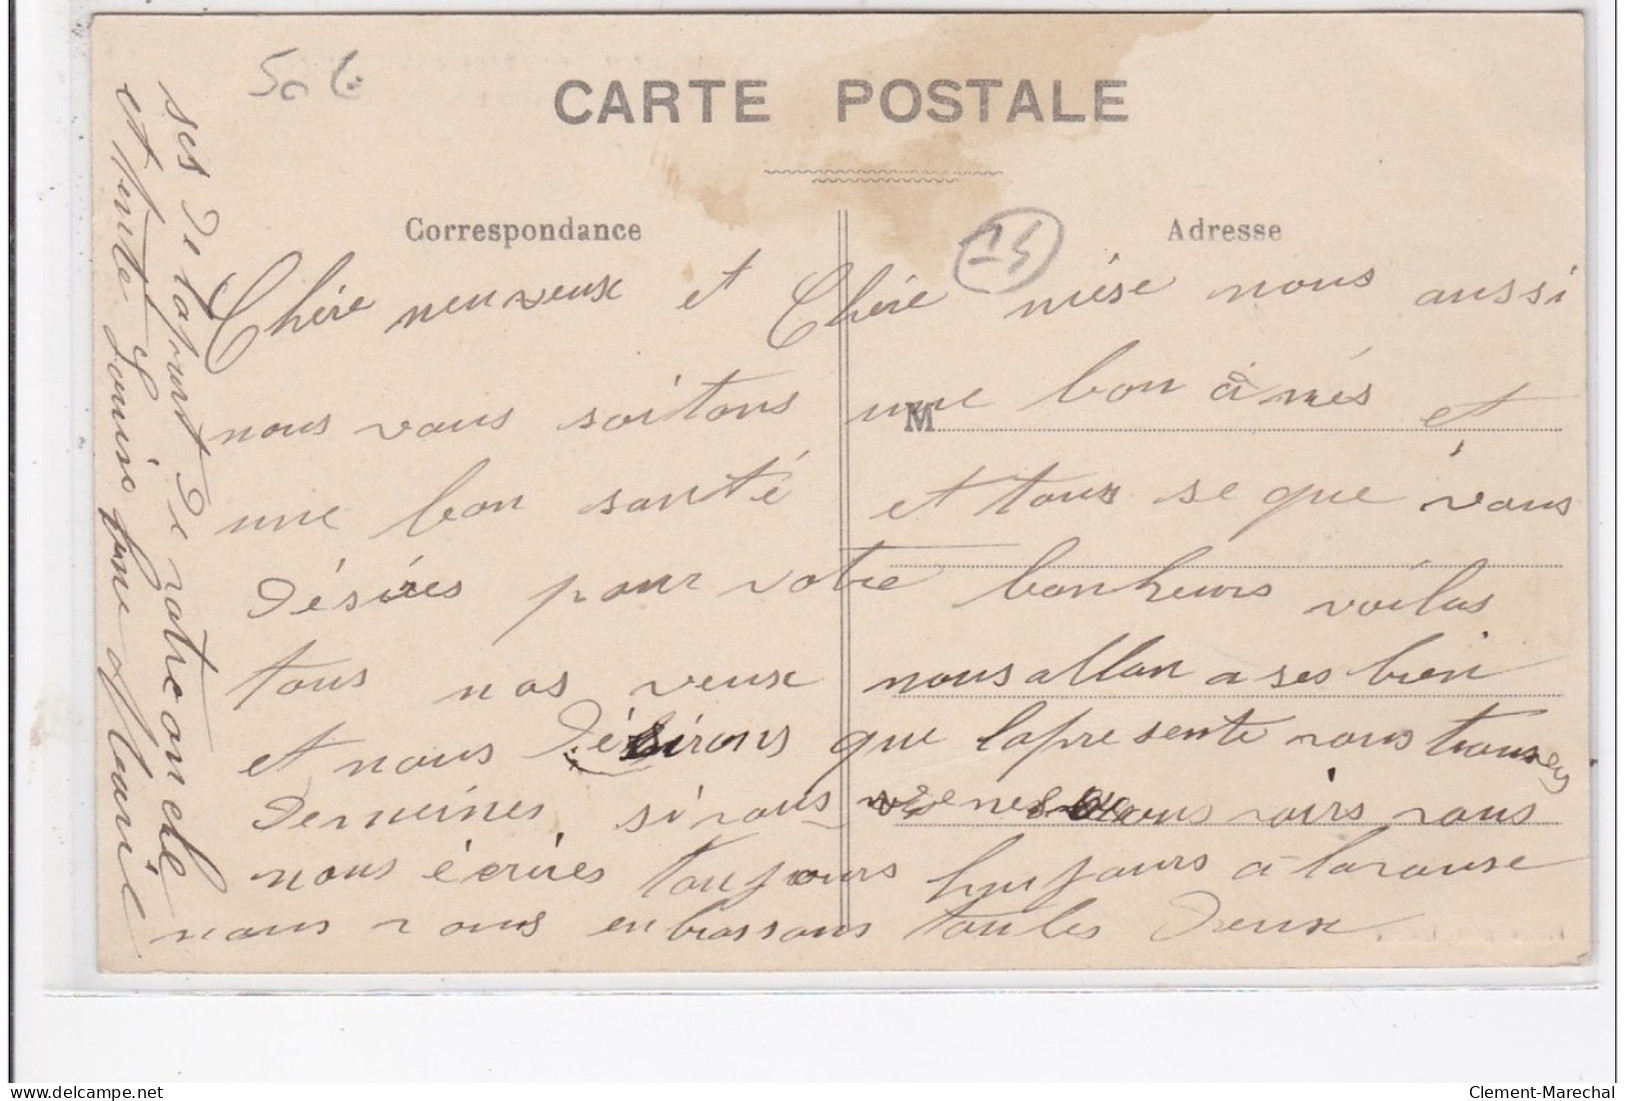 50 €
CARTE POSTALE
Correspondance
Adresse
Chère neuveux et Chère nièse nous aussi
nous vous soitons une bon anés et
M
une bon santé et tous se que vous
désires pour votre bonheurs voilas
tous nos veux nous allon a ses bien
et nous désirons que laprésente vous trouves
de meines si vous venes nous voirs vous
nous écrires toujours toujours a la
nous vous enbrassons toules deux.
ses de lapart de votre oncle
et tente Louise Marie
Clement-Marechal